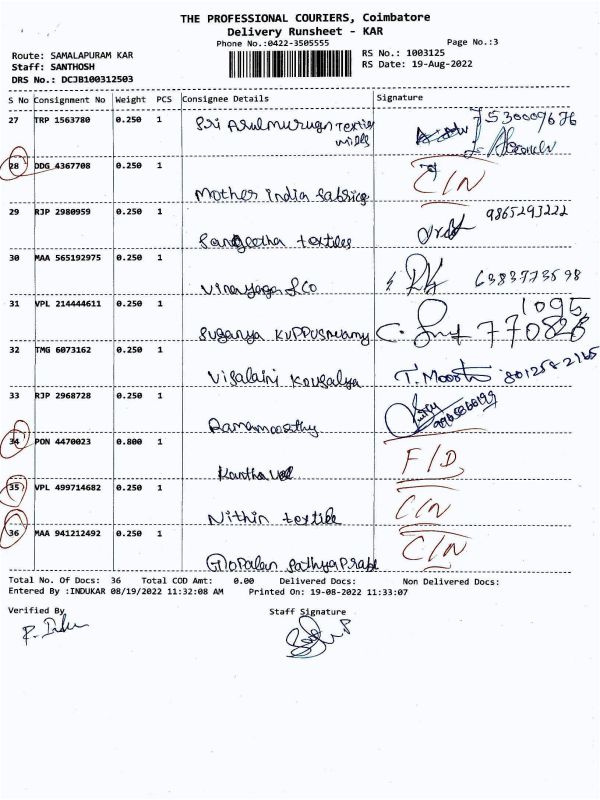 THE PROFESSIONAL COURIERS, Coimbatore
Delivery Runsheet - KAR
Phone No.:0422-3505555 Page No.:3
Route: SAMALAPURAM KAR RS No.: 1003125
Staff: SANTHOSH RS Date: 19-Aug-2022
DRS No.: DCJB100312503
S No Consignment No Weight PCS Consignee Details Signature
27 TRP 1563780 0.250 1 Sri Arulmurugn Textile 7530009676
mills
28 DDG 4367708 0.250 1 C/N
Mother india fabrics
29 RJP 2980959 0.250 1 9865293222
Sangeetha textiles
30 MAA 565192975 0.250 1
Vinayaga & Co 6383773598
31 VPL 214444611 0.250 1 1095
Suganya Kuppuswamy 770826
32 TMG 6073162 0.250 1
Visalaini Kousalya T. Moorth 8012582165
33 RJP 2968728 0.250 1
Ramamoorthy
34 PON 4470023 0.800 1 F/D
Kantha vel
35 VPL 499714682 0.250 1 C/N
Nithin textile
36 MAA 941212492 0.250 1 C/N
Gopalan Sathyaprabk
Total No. Of Docs: 36 Total COD Amt: 0.00 Delivered Docs: Non Delivered Docs:
Entered By :INDUKAR 08/19/2022 11:32:08 AM Printed On: 19-08-2022 11:33:07
Verified By Staff Signature
R. Indu